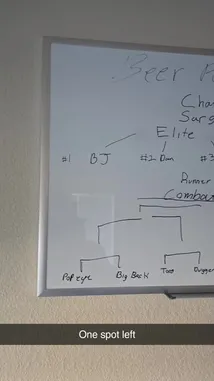 Beer P
Cha
Surg
Elite
#1 BJ #2 Dan #3
Runner
Combar
Popeye Big Back Too Dugger
One spot left